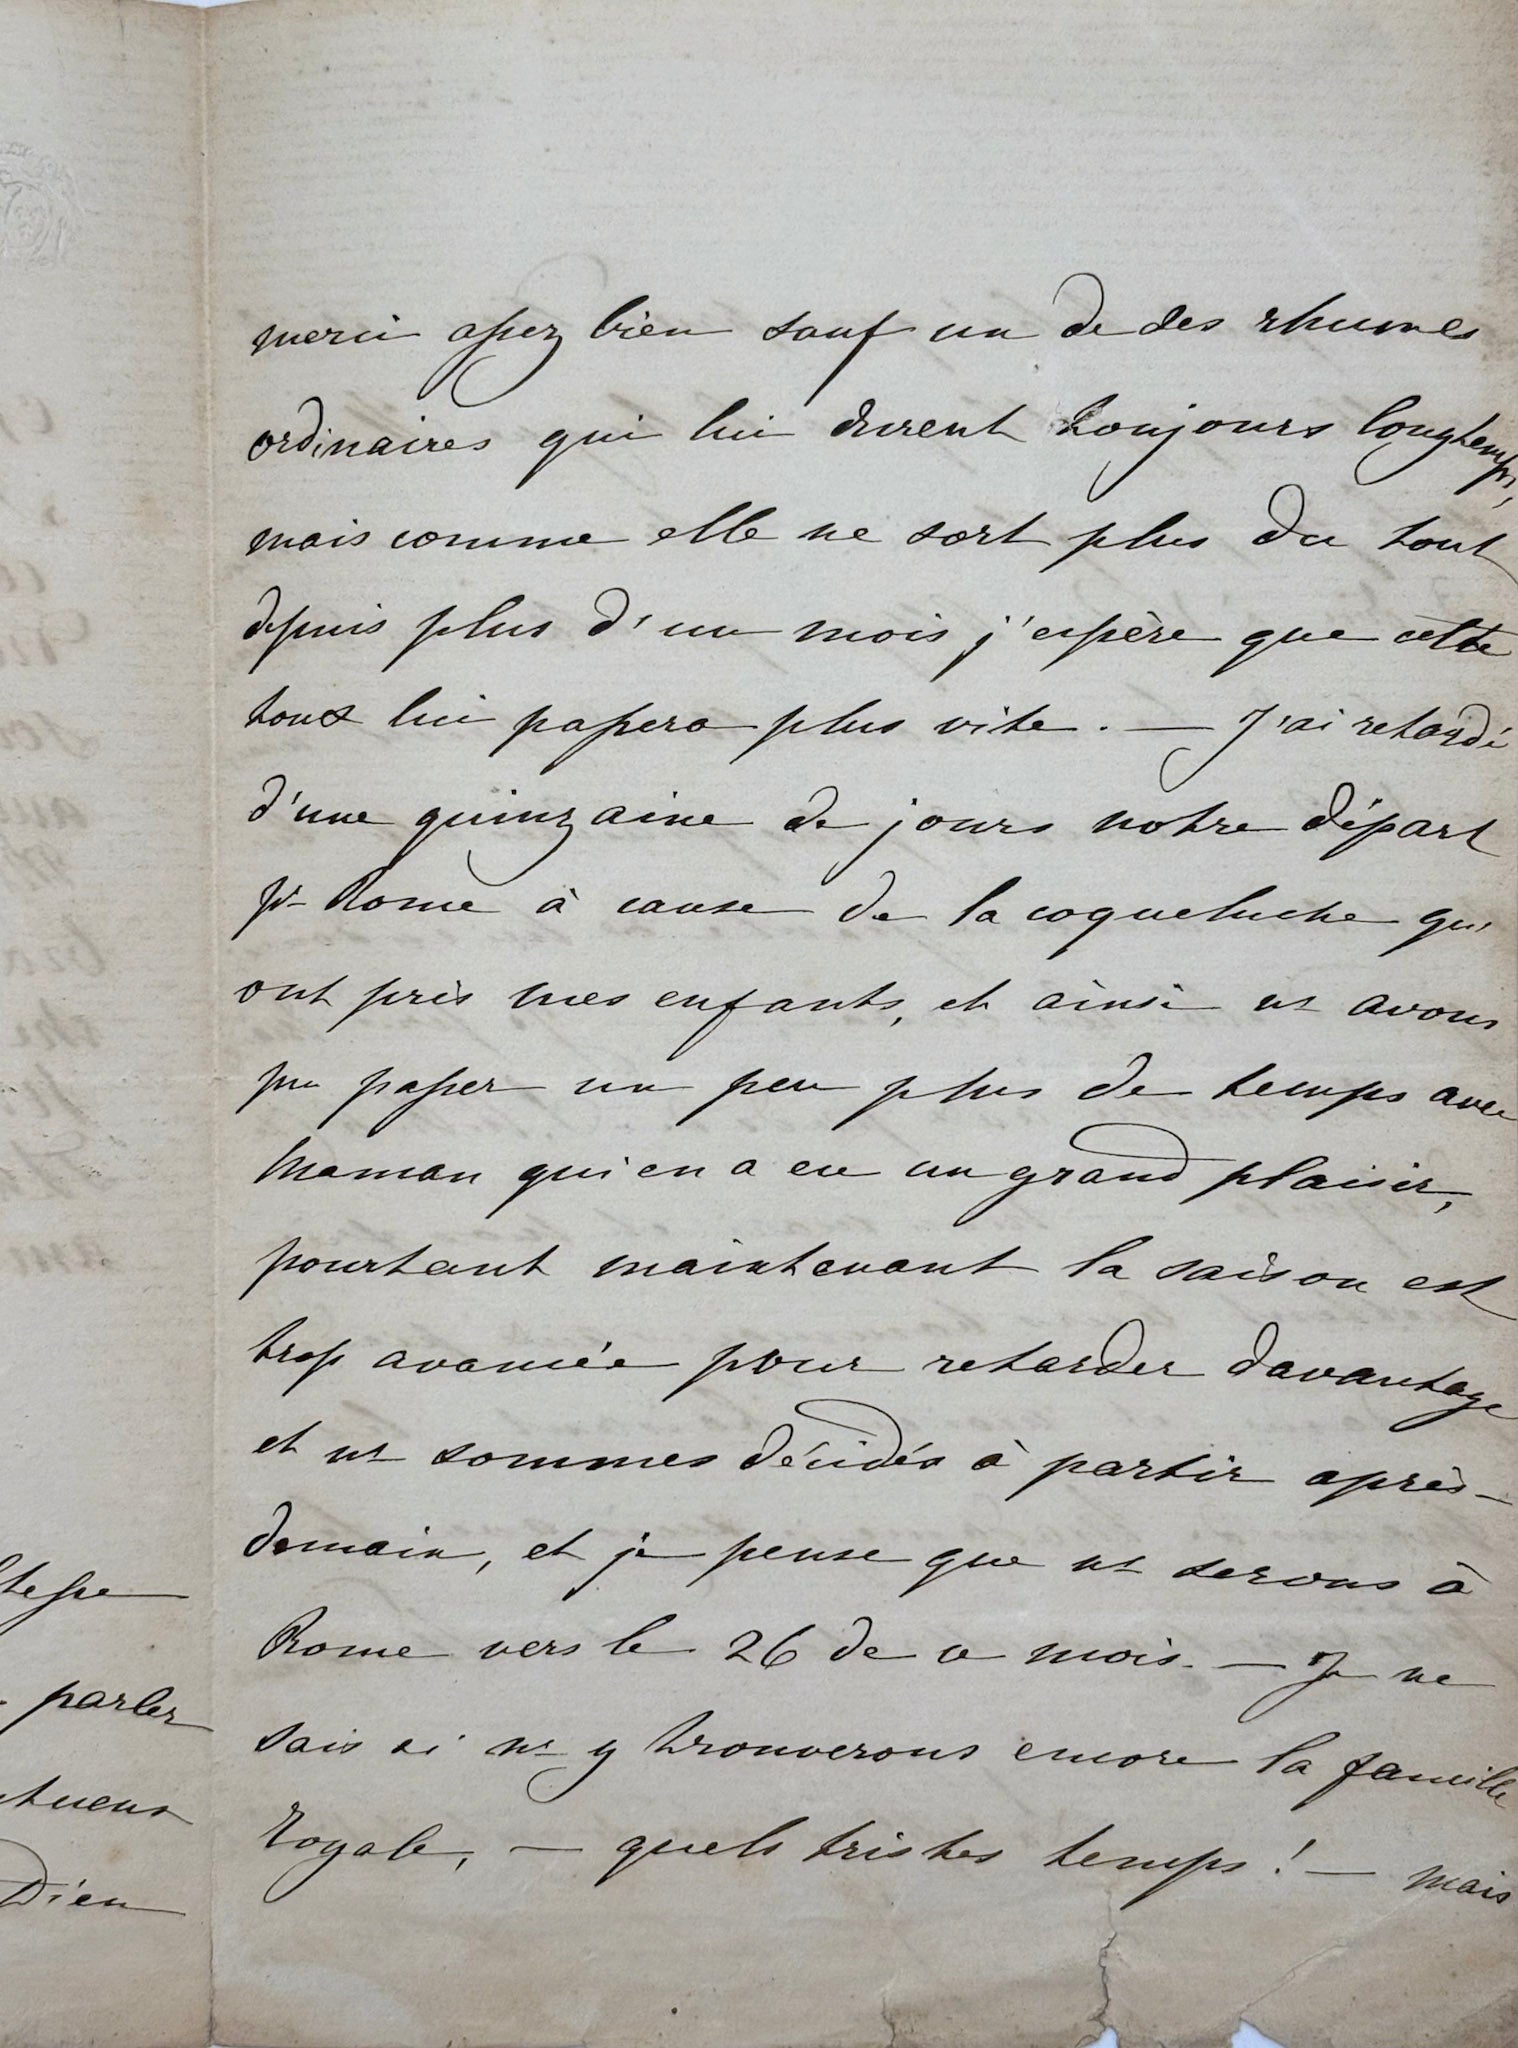 merci assez bien sauf un de ses rhumes
ordinaires qui lui durent toujours longtemps,
mais comme elle ne sort plus du tout
depuis plus d'un mois j'espère que cette
toux lui passera plus vite. — J'ai retardé
d'une quinzaine de jours notre départ
pr Rome à cause de la coqueluche qu'
ont pris mes enfants, et ainsi ns avons
pu passer un peu plus de temps avec
Maman qui en a eu un grand plaisir,
pourtant maintenant la saison est
trop avancée pour retarder davantage
et ns sommes décidés à partir après-
demain, et je pense que ns serons à
Rome vers le 26 de ce mois. — Je ne
sais si ns y trouverons encore la famille
Royale, — quels tristes temps! — mais
parler
Dieu